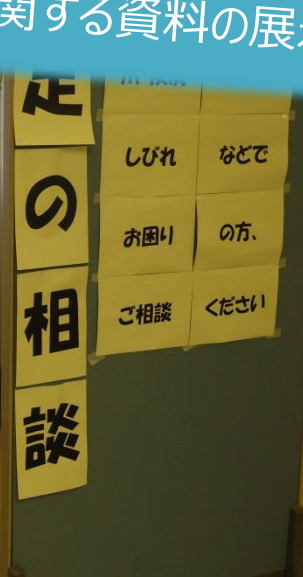 関する資料の展
足の相談
しびれ などで
お困り の方、
ご相談 ください